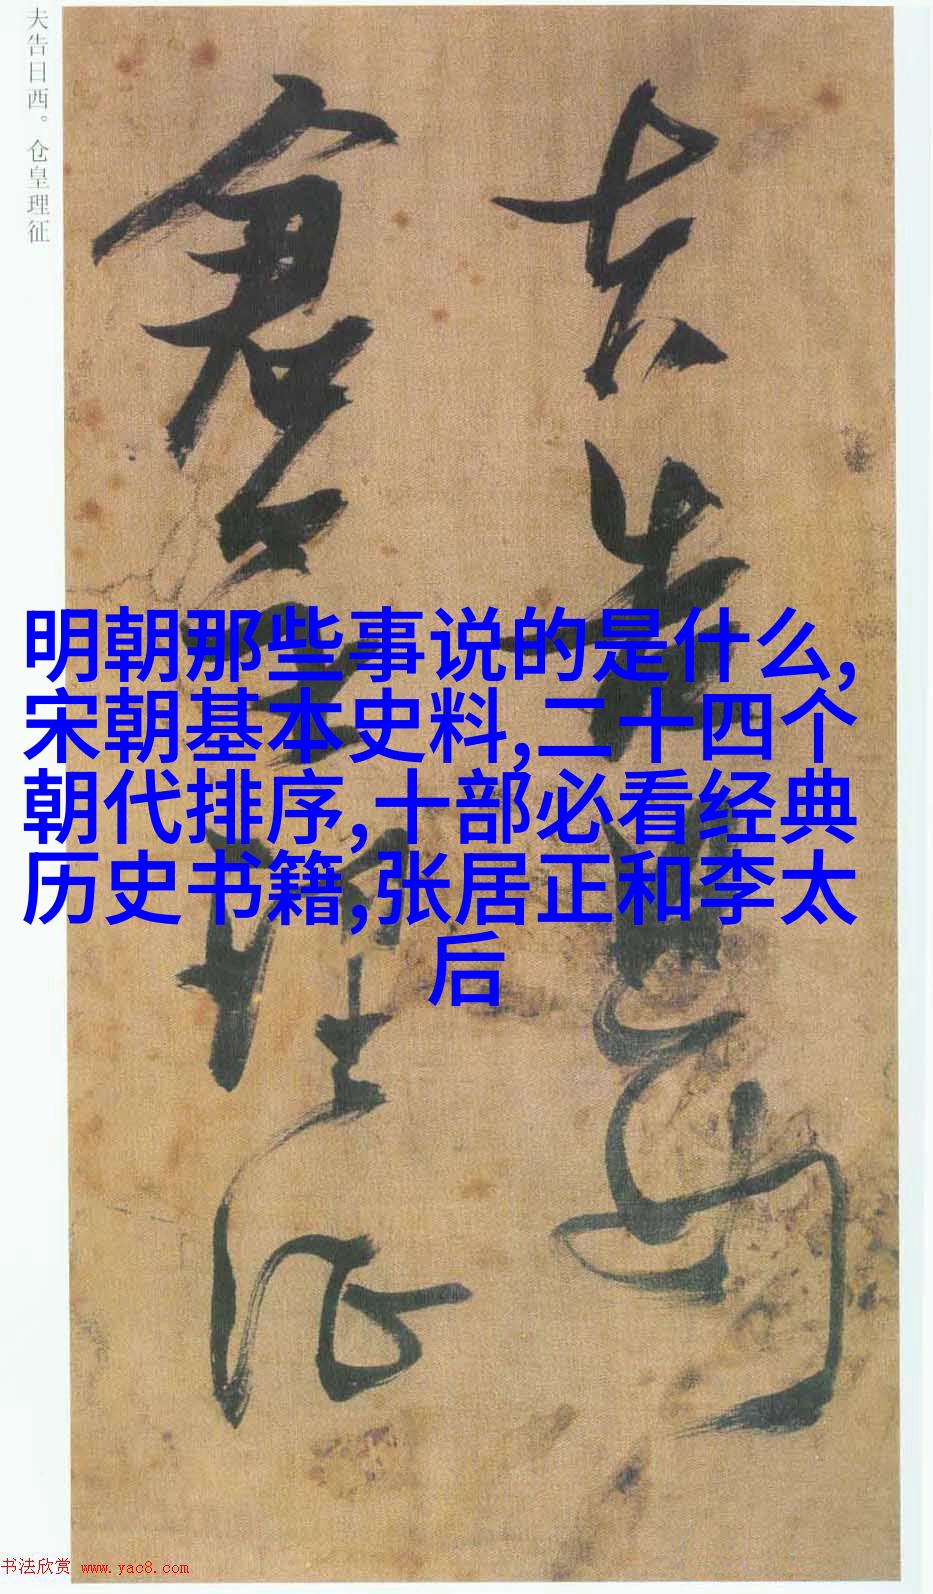 夫告日西。仓皇理征
夫告日西
倉皇理征
明朝那些事说的是什么,
宋朝基本史料,二十四个
朝代排序,十部必看经典
历史书籍,张居正和李太
后
书法欣赏 www.yac8.com